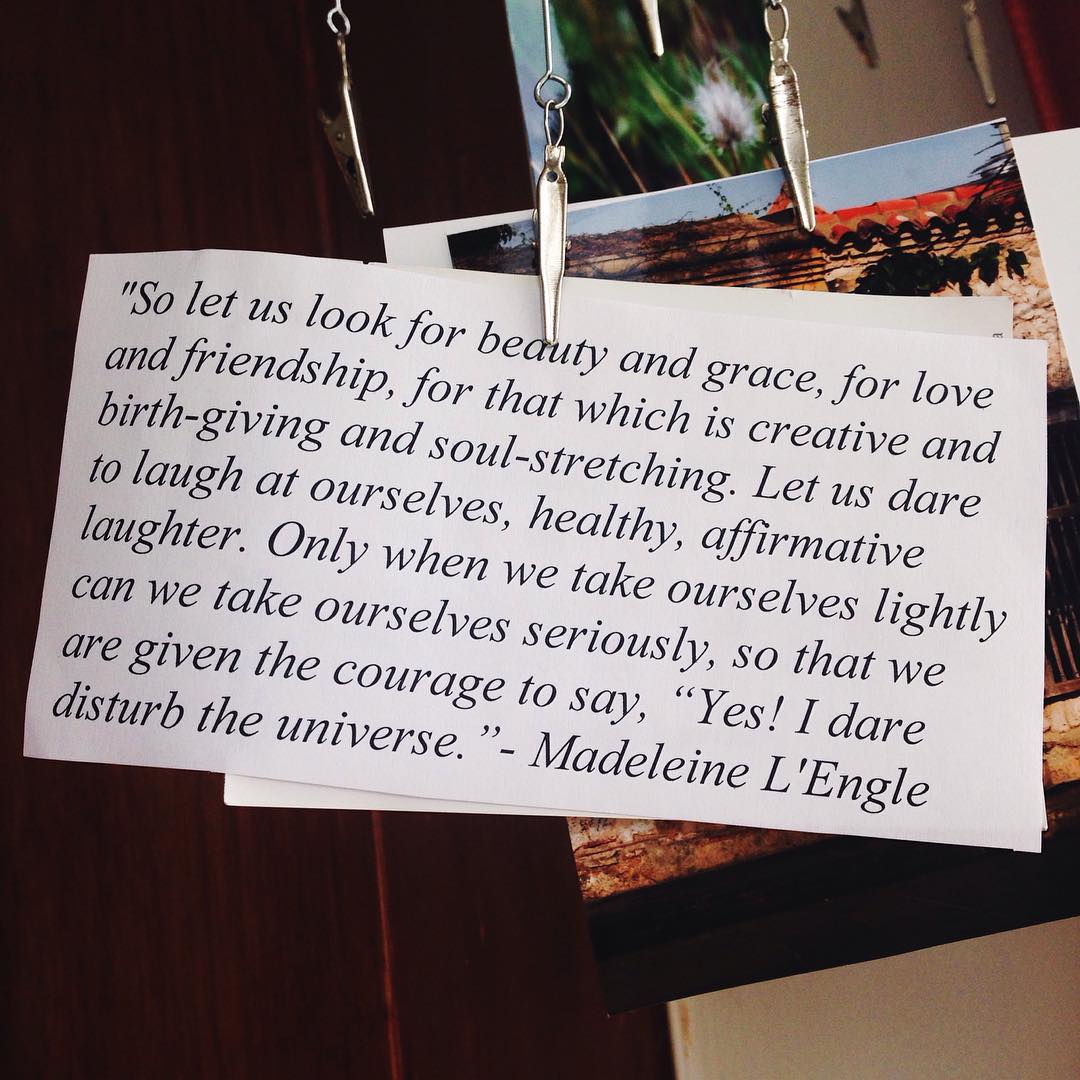 "So let us look for beauty and grace, for love
and friendship, for that which is creative and
birth-giving and soul-stretching. Let us dare
to laugh at ourselves, healthy, affirmative
laughter. Only when we take ourselves lightly
can we take ourselves seriously, so that we
are given the courage to say, “Yes! I dare
disturb the universe.”- Madeleine L'Engle